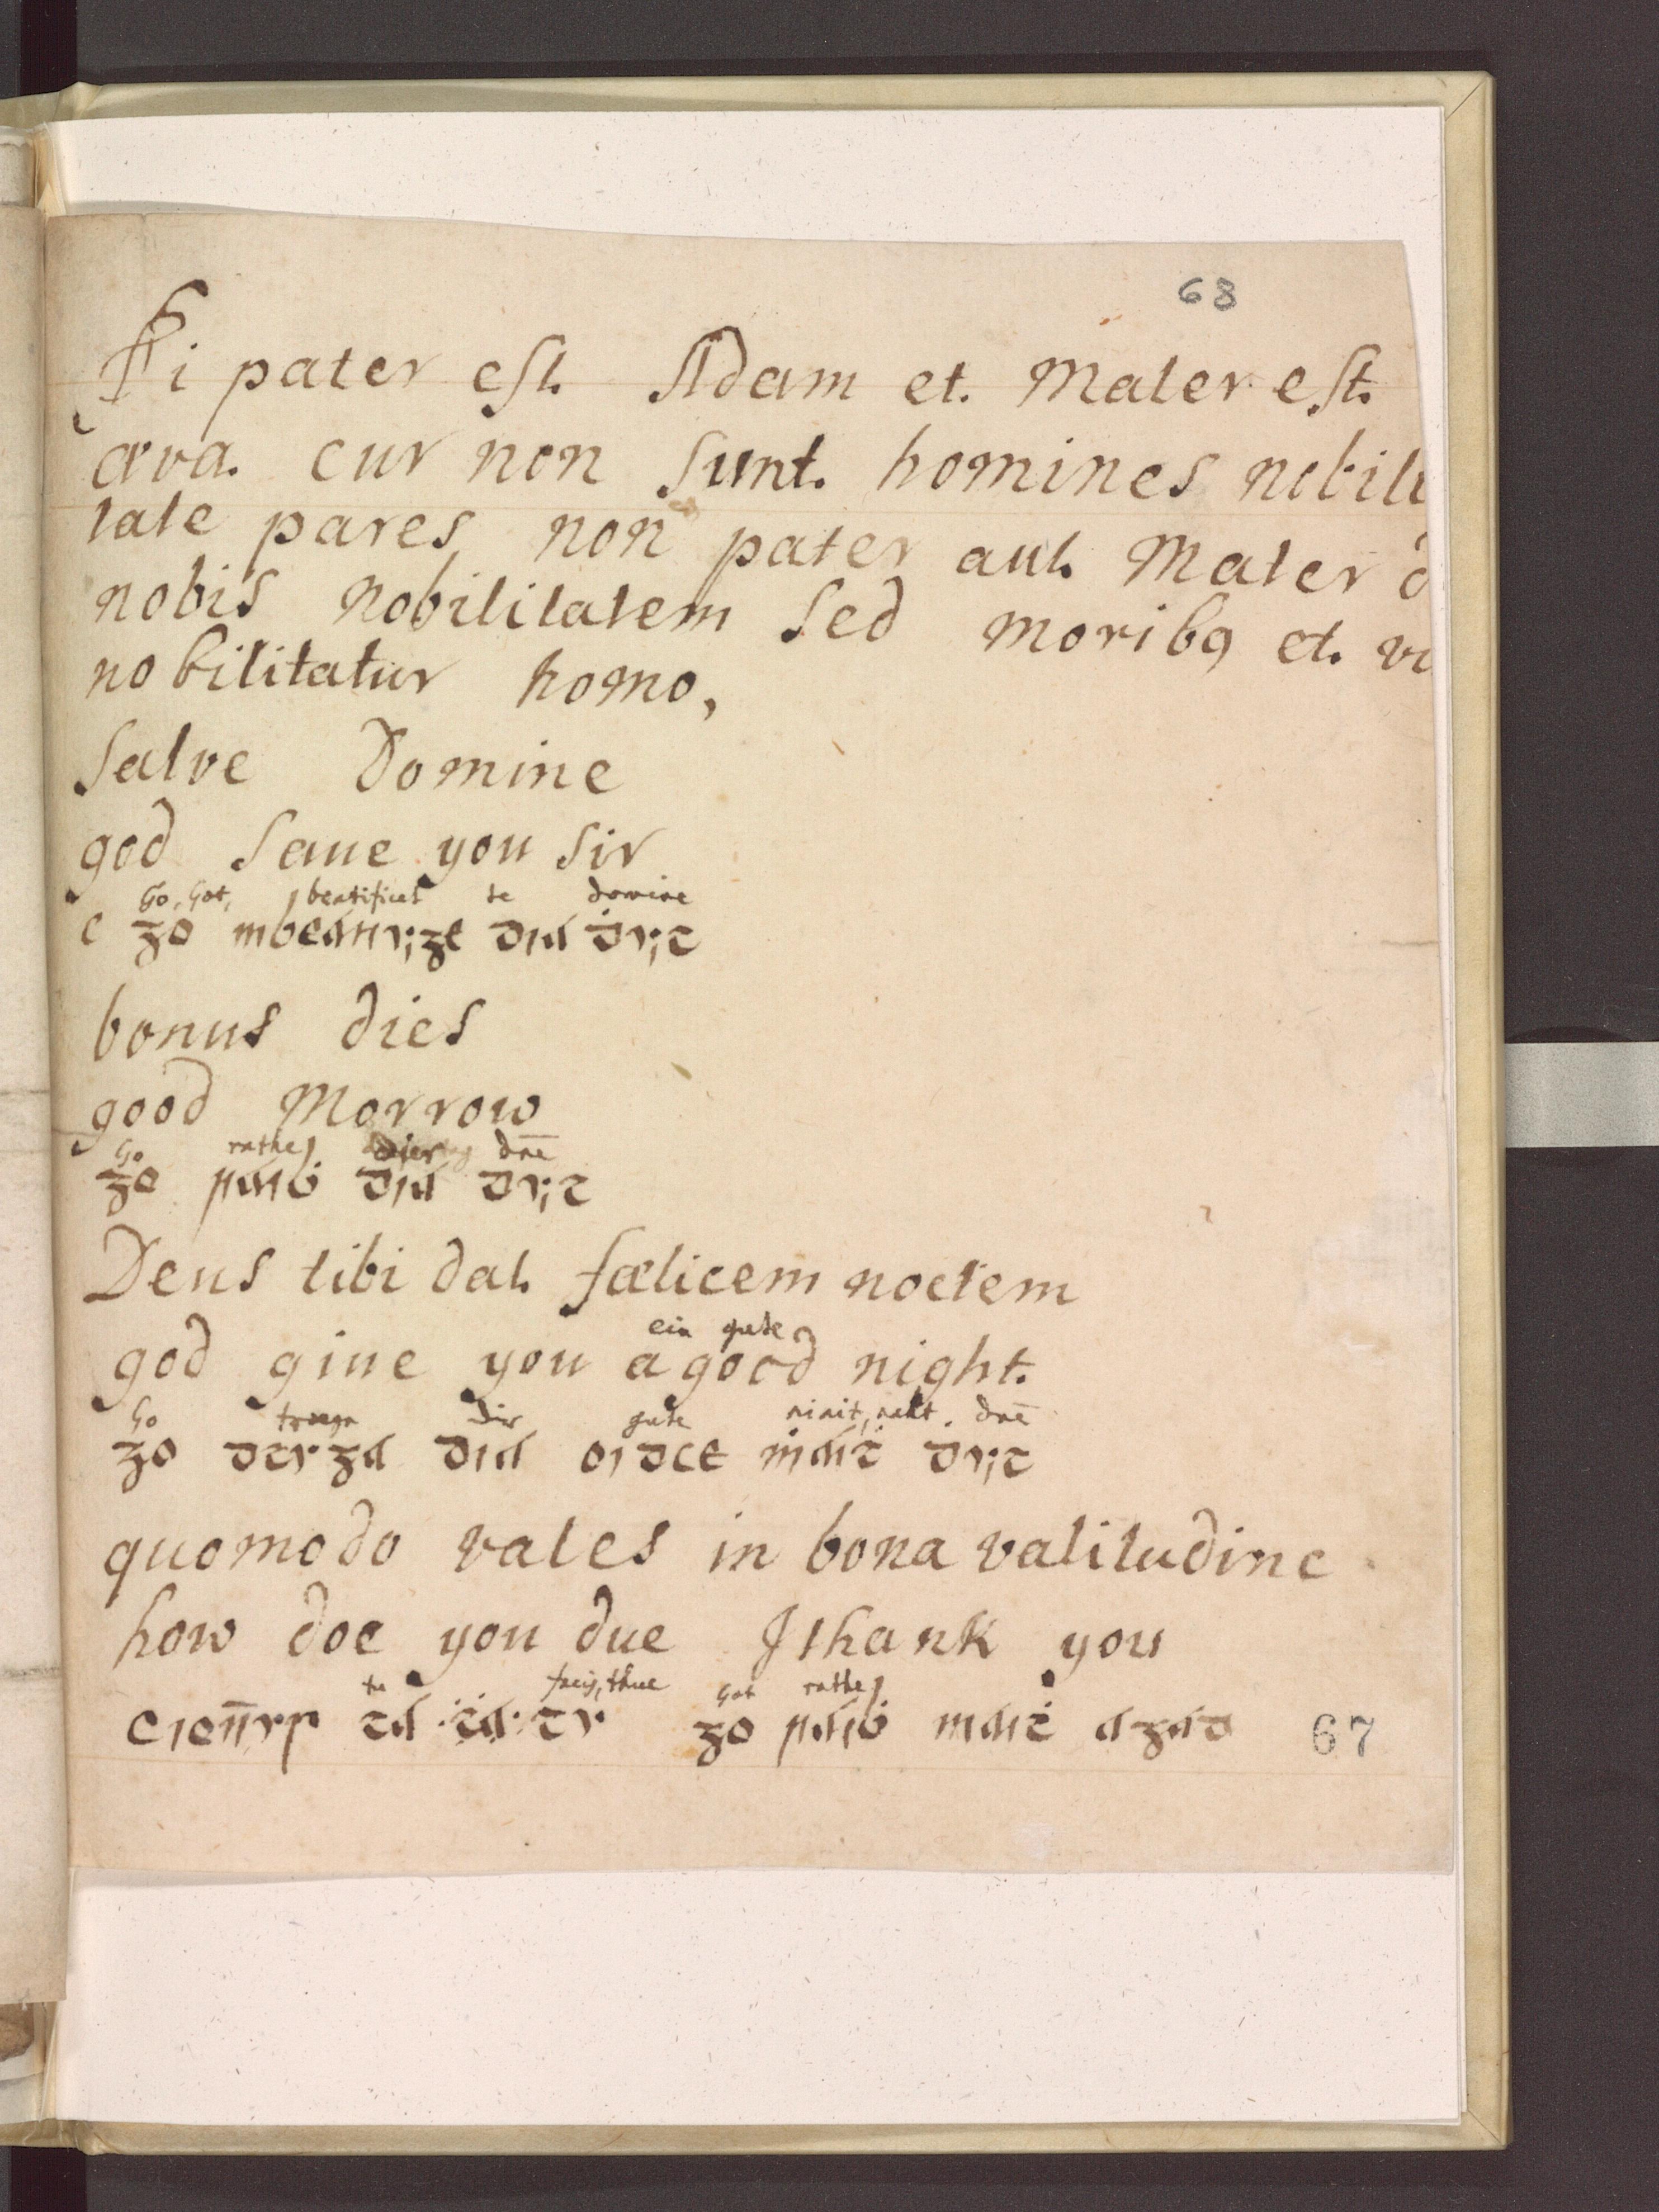 68
Si pater est Adam et Mater est
æva cur non sunt homines nobili
tate pares non pater aut Mater d
nobis nobilitatem sed moribꝯ et vi
nobilitatur homo,
Salve Domine
god saue you sir
Go, Got, beatificet te domine
c go mbeannuiġe dia ḋuit
bonus dies
good Morrow
Go rathe dnē
go raiḃ dia duit
Deus tibi dat fœlicem noctem
ein gute
god giue you a good night
Go dir gute nait, naht. dnē
go dia oidce ṁaiṫ duit
quomodo vales in bona valitudine
how doe you due I thank you
tu fais, thue Got rathe
go raiḃ maiṫ agad
67